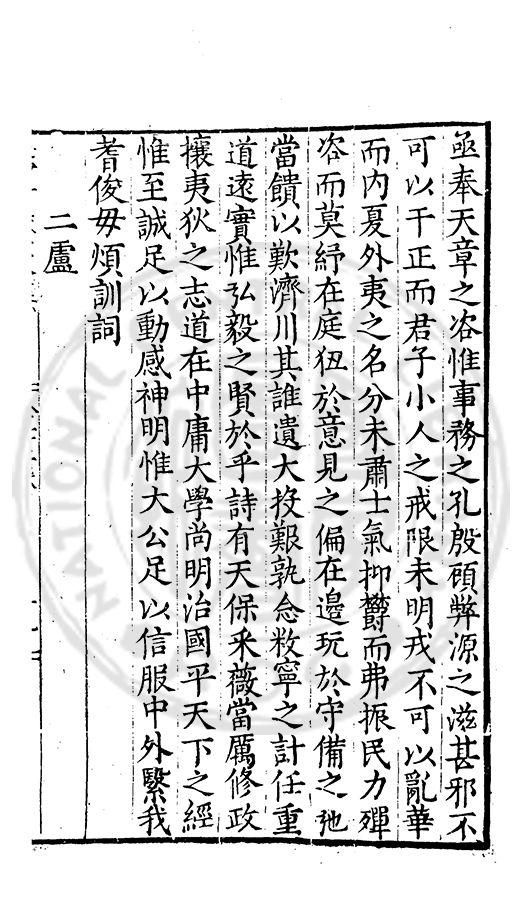 亟奉天章之咨惟事務之孔殷頋弊源之滋甚邪不
可以干正而君子小人之戒限未明戎不可以亂華
而内夏外夷之名分未肅士氣抑欝而弗振民力殫
咨而莫紓在庭狃於意見之偏在邊玩於守備之弛
當饋以歎濟川其誰遺大投艱孰念敉寧之計任重
道遠實惟弘毅之賢於乎詩有天保采薇當厲修政
攘夷狄之志道在中庸大學尚明治國平天下之經
惟至誠足以動感神明惟大公足以信服中外繄我
耆俊毋煩訓詞
二盧
NATIONAL